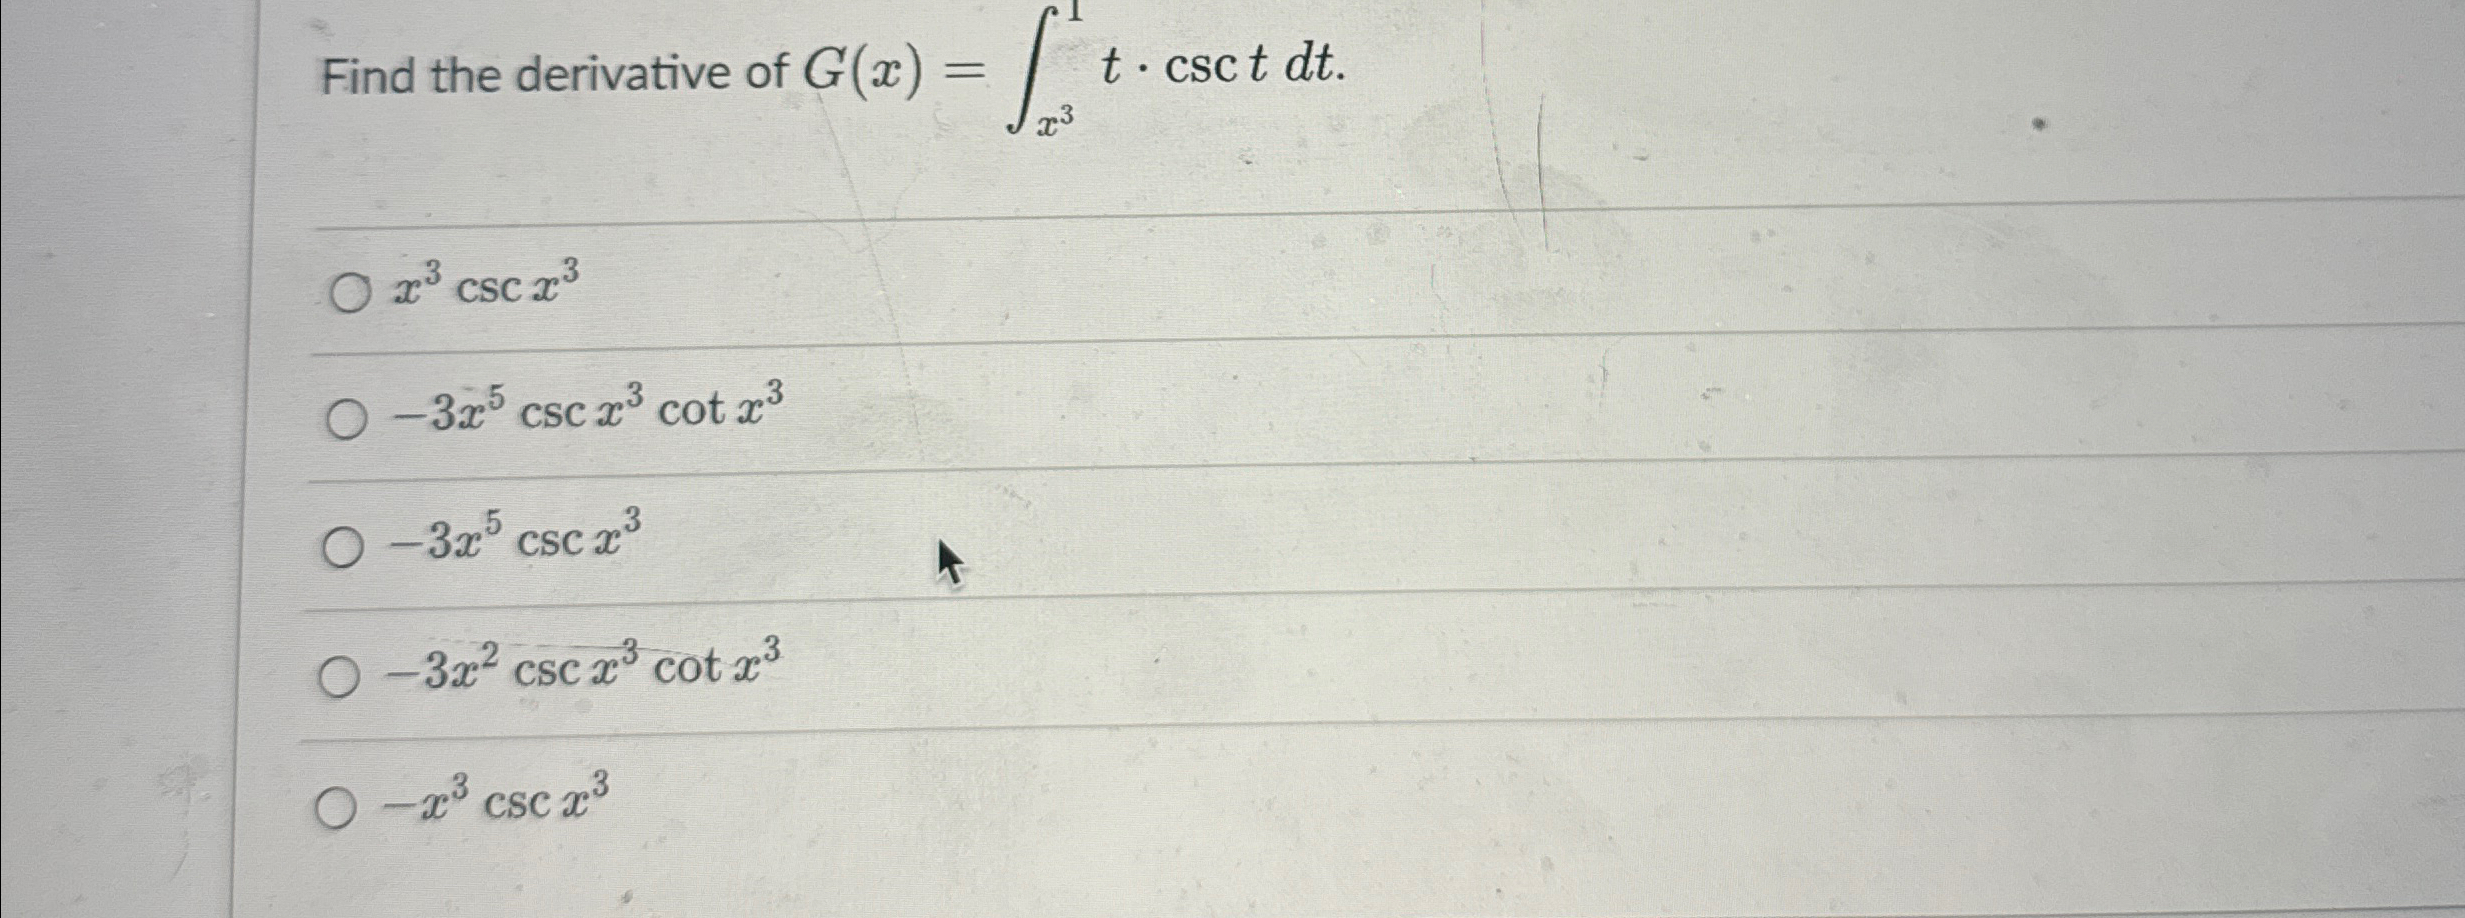 Find the derivative of G(x) = ∫_{x³}^{1} t · csc t dt.
x³ csc x³
−3x⁵ csc x³ cot x³
−3x⁵ csc x³
−3x² csc x³ cot x³
−x³ csc x³